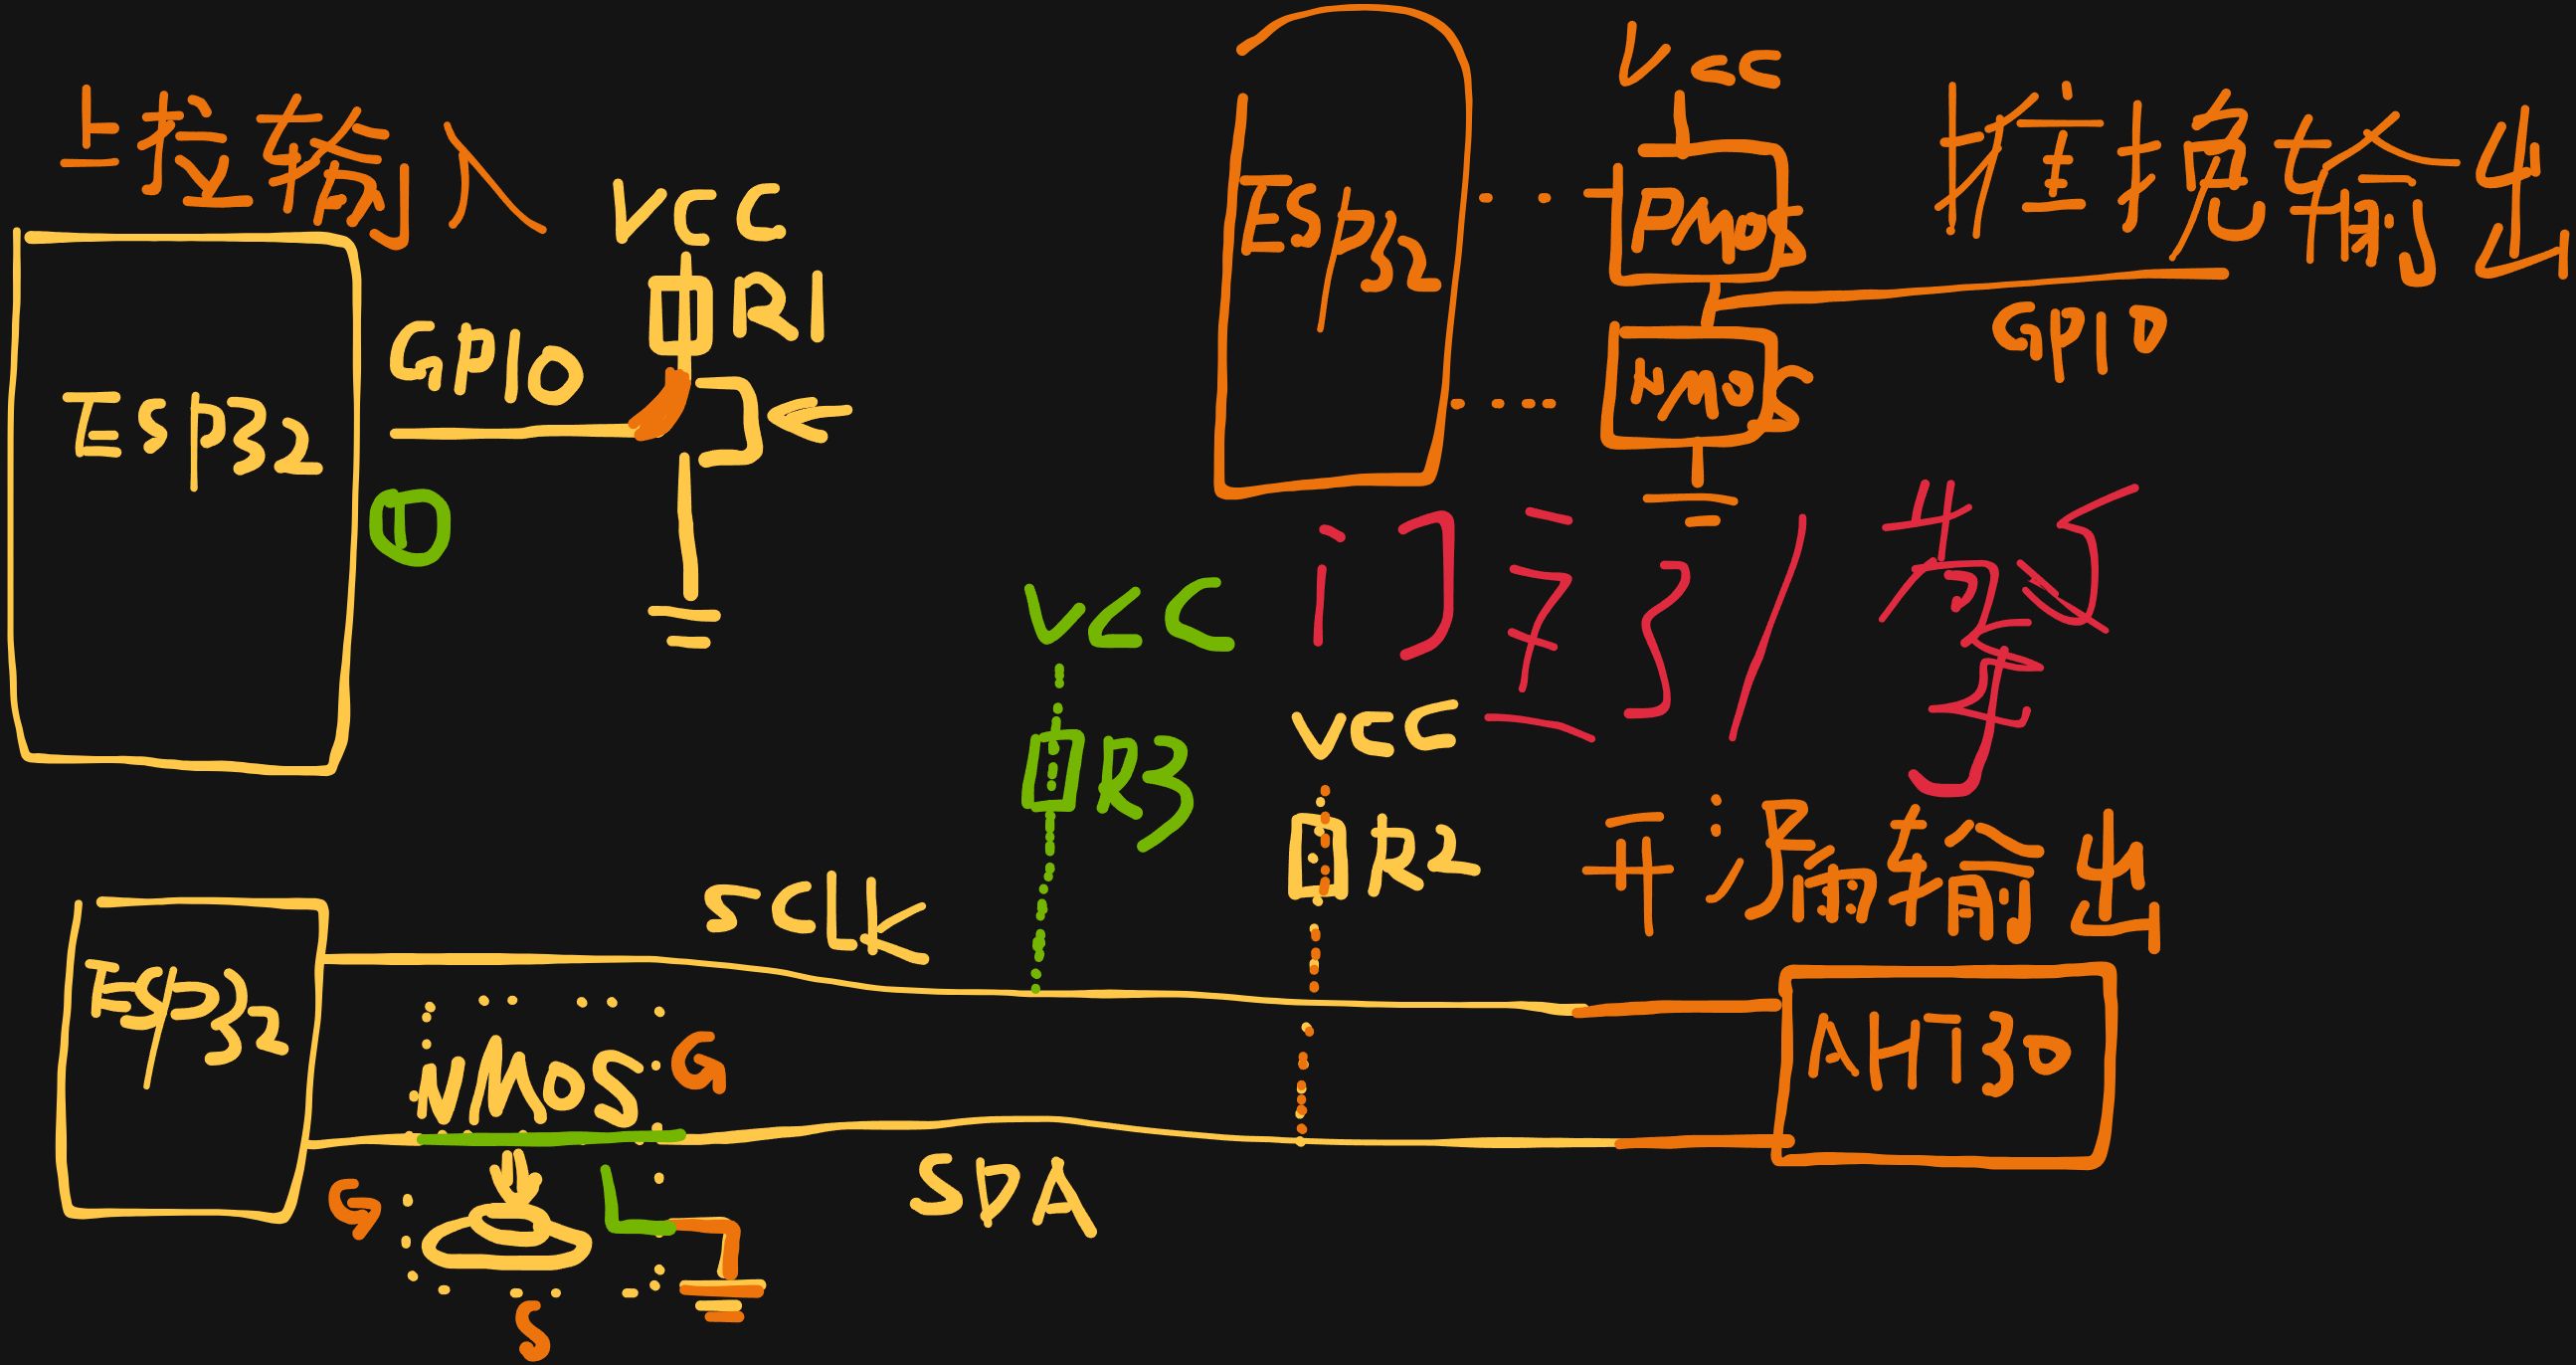 上拉输入
VCC
R1
GPIO
ESP32
①
VCC
推挽输出
ESP32
PMOS
GPIO
NMOS
VCC
R3
VCC
R2
开漏输出
SCLK
ESP32
NMOS
G
AHT30
SDA
G
S